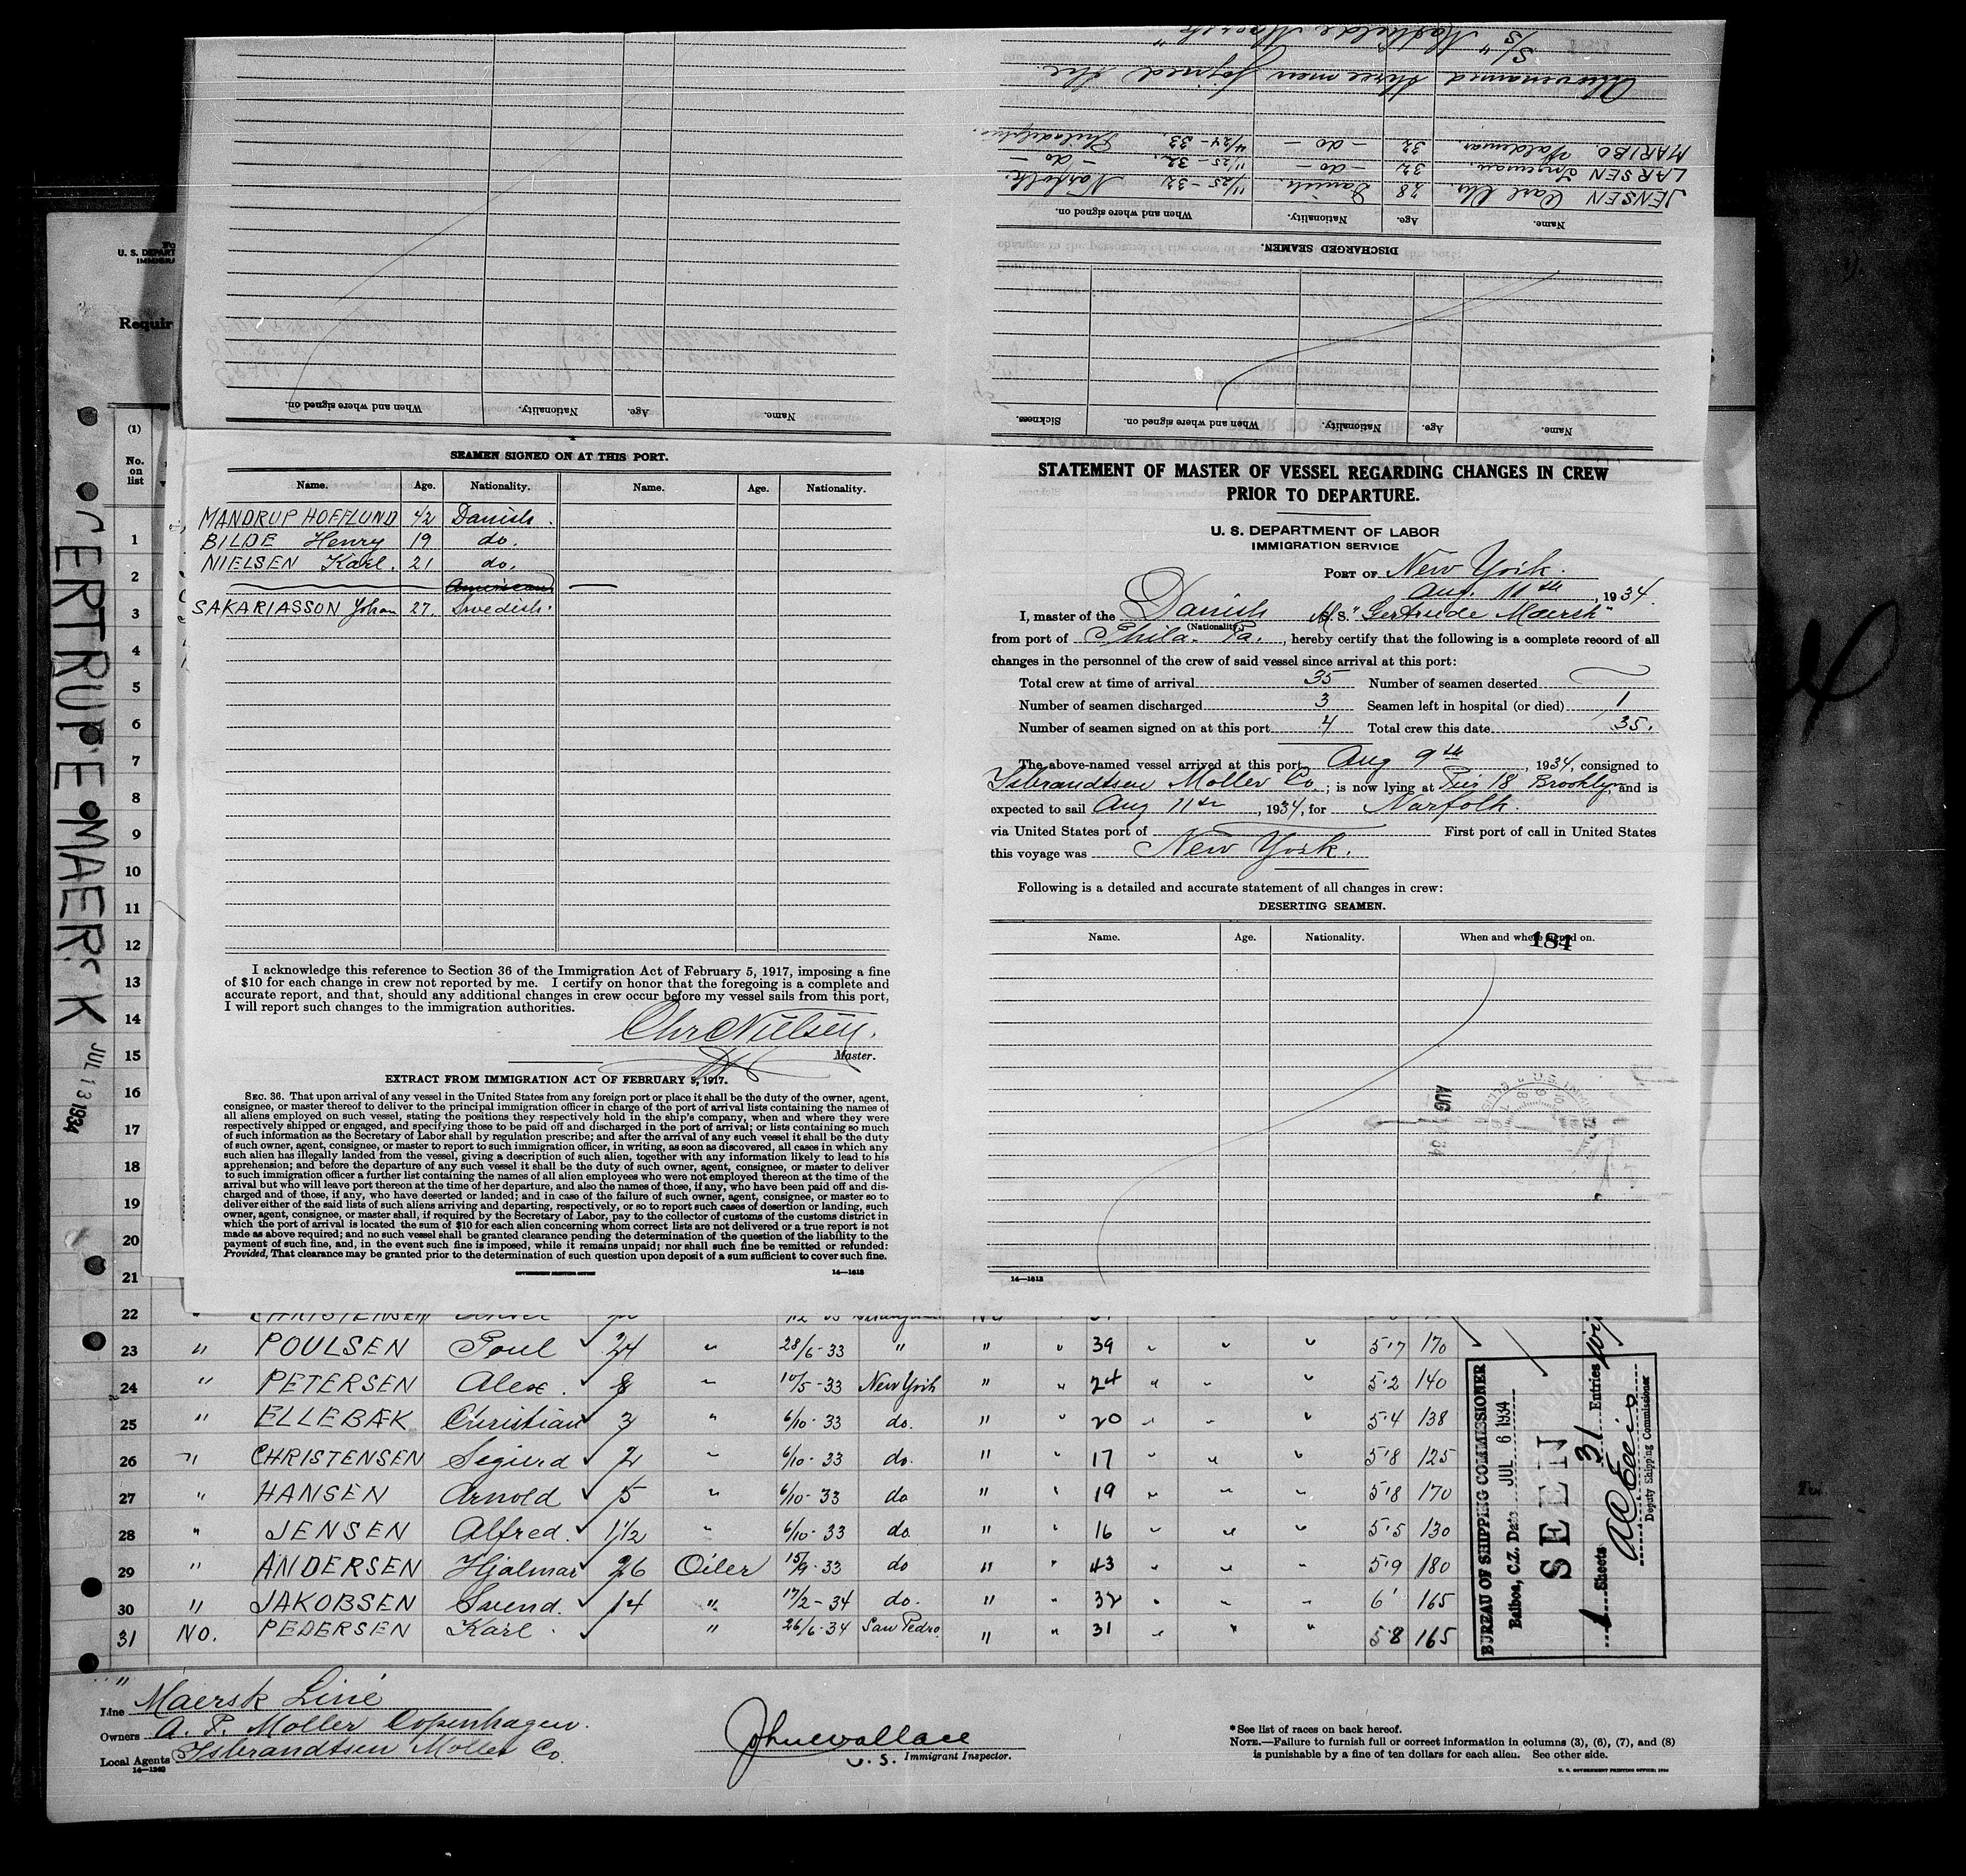 Abovenamed three men joined the
S/S "
MARIBO Valdemar. 32 - do - 4/24-33. Philadelphia.
LARSEN 32 - do - 11/25-32. - do -
JENSEN Carl Chr. 28 Danish. 11/25-32 Norfolk.
Name. Age. Nationality. When and where signed on.
DISCHARGED SEAMEN.
Name. Age. Nationality. When and where signed on. Sickness.
Name. Age. Nationality. When and where signed on.
U. S. DEPART
IMMIGRA
Requir
(1)
No.
on
list
SEAMEN SIGNED ON AT THIS PORT.
Name. Age. Nationality. Name. Age. Nationality.
MANDRUP HOFFLUND 42 Danish.
BILDE Henry 19 do.
NIELSEN Karl. 21 do.
American
SAKARIASSON Johan 27. Swedish.
I acknowledge this reference to Section 36 of the Immigration Act of February 5, 1917, imposing a fine
of $10 for each change in crew not reported by me. I certify on honor that the foregoing is a complete and
accurate report, and that, should any additional changes in crew occur before my vessel sails from this port,
I will report such changes to the immigration authorities.
Chr Nielsen.
Master.
EXTRACT FROM IMMIGRATION ACT OF FEBRUARY 5, 1917.
SEC. 36. That upon arrival of any vessel in the United States from any foreign port or place it shall be the duty of the owner, agent,
consignee, or master thereof to deliver to the principal immigration officer in charge of the port of arrival lists containing the names of
all aliens employed on such vessel, stating the positions they respectively hold in the ship's company, when and where they were
respectively shipped or engaged, and specifying those to be paid off and discharged in the port of arrival; or lists containing so much
of such information as the Secretary of Labor shall by regulation prescribe; and after the arrival of any such vessel it shall be the duty
of such owner, agent, consignee, or master to report to such immigration officer, in writing, as soon as discovered, all cases in which any
such alien has illegally landed from the vessel, giving a description of such alien, together with any information likely to lead to his
apprehension; and before the departure of any such vessel it shall be the duty of such owner, agent, consignee, or master to deliver
to such immigration officer a further list containing the names of all alien employees who were not employed thereon at the time of the
arrival but who will leave port thereon at the time of her departure, and also the names of those, if any, who have been paid off and dis-
charged and of those, if any, who have deserted or landed; and in case of the failure of such owner, agent, consignee, or master so to
deliver either of the said lists of such aliens arriving and departing, respectively, or so to report such cases of desertion or landing, such
owner, agent, consignee, or master shall, if required by the Secretary of Labor, pay to the collector of customs of the customs district in
which the port of arrival is located the sum of $10 for each alien concerning whom correct lists are not delivered or a true report is not
made as above required; and no such vessel shall be granted clearance pending the determination of the question of the liability to the
payment of such fine, and, in the event such fine is imposed, while it remains unpaid; nor shall such fine be remitted or refunded:
Provided, That clearance may be granted prior to the determination of such question upon deposit of a sum sufficient to cover such fine.
GOVERNMENT PRINTING OFFICE 14—1613
STATEMENT OF MASTER OF VESSEL REGARDING CHANGES IN CREW
PRIOR TO DEPARTURE.
U. S. DEPARTMENT OF LABOR
IMMIGRATION SERVICE
PORT OF New York.
Aug. 11th, 1934.
I, master of the Danish M.S. "Gertrude Maersk"
(Nationality)
from port of Phila. Pa., hereby certify that the following is a complete record of all
changes in the personnel of the crew of said vessel since arrival at this port:
Total crew at time of arrival 35 Number of seamen deserted
Number of seamen discharged 3 Seamen left in hospital (or died) 1
Number of seamen signed on at this port 4 Total crew this date 35.
The above-named vessel arrived at this port Aug 9th, 1934, consigned to
Isbrandtsen Moller Co.; is now lying at Pier 18 Brooklyn, and is
expected to sail Aug 11th, 1934, for Norfolk.
via United States port of First port of call in United States
this voyage was New York.
Following is a detailed and accurate statement of all changes in crew:
DESERTING SEAMEN.
Name. Age. Nationality. When and where signed on.
184
AUG 34
14—1613
GERTRUDE MAERSK JUL 13 1934
1
2
3
4
5
6
7
8
9
10
11
12
13
14
15
16
17
18
19
20
21
22 " CHRISTENSEN
23 " POULSEN Poul 24 " 28/6-33 " " " 39 " " " 5'7 170
24 " PETERSEN Alex. 8 " 10/5-33 New York " " 24 " " " 5'2 140
25 " ELLEBÆK Christian 3 " 6/10-33 do. " " 20 " " " 5'4 138
26 " CHRISTENSEN Sigurd 2 " 6/10-33 do. " " 17 " " " 5'8 125
27 " HANSEN Arnold 5 " 6/10-33 do " " 19 " " " 5'8 170
28 " JENSEN Alfred. 1 1/2 " 6/10-33 do. " " 16 " " " 5'5 130
29 " ANDERSEN Hjalmar 26 Oiler 15/9-33 do " " 43 " " " 5'9 180
30 " JAKOBSEN Svend. 14 " 17/2-34 do. " " 32 " " " 6' 165
31 NO. PEDERSEN Karl. " 26/6-34 San Pedro. " " 31 " " " 5'8 165
BUREAU OF SHIPPING COMMISSIONER
Balboa, C.Z. Date JUL 6 1934
SEEN
1 Sheets 31 Entries
Deputy Shipping Commissioner
Line Maersk Line
Owners A. P. Moller Copenhagen.
Local Agents Isbrandtsen Moller Co.
14—1240
John Wallace
U. S. Immigrant Inspector.
*See list of races on back hereof.
NOTE.—Failure to furnish full or correct information in columns (3), (6), (7), and (8)
is punishable by a fine of ten dollars for each alien. See other side.